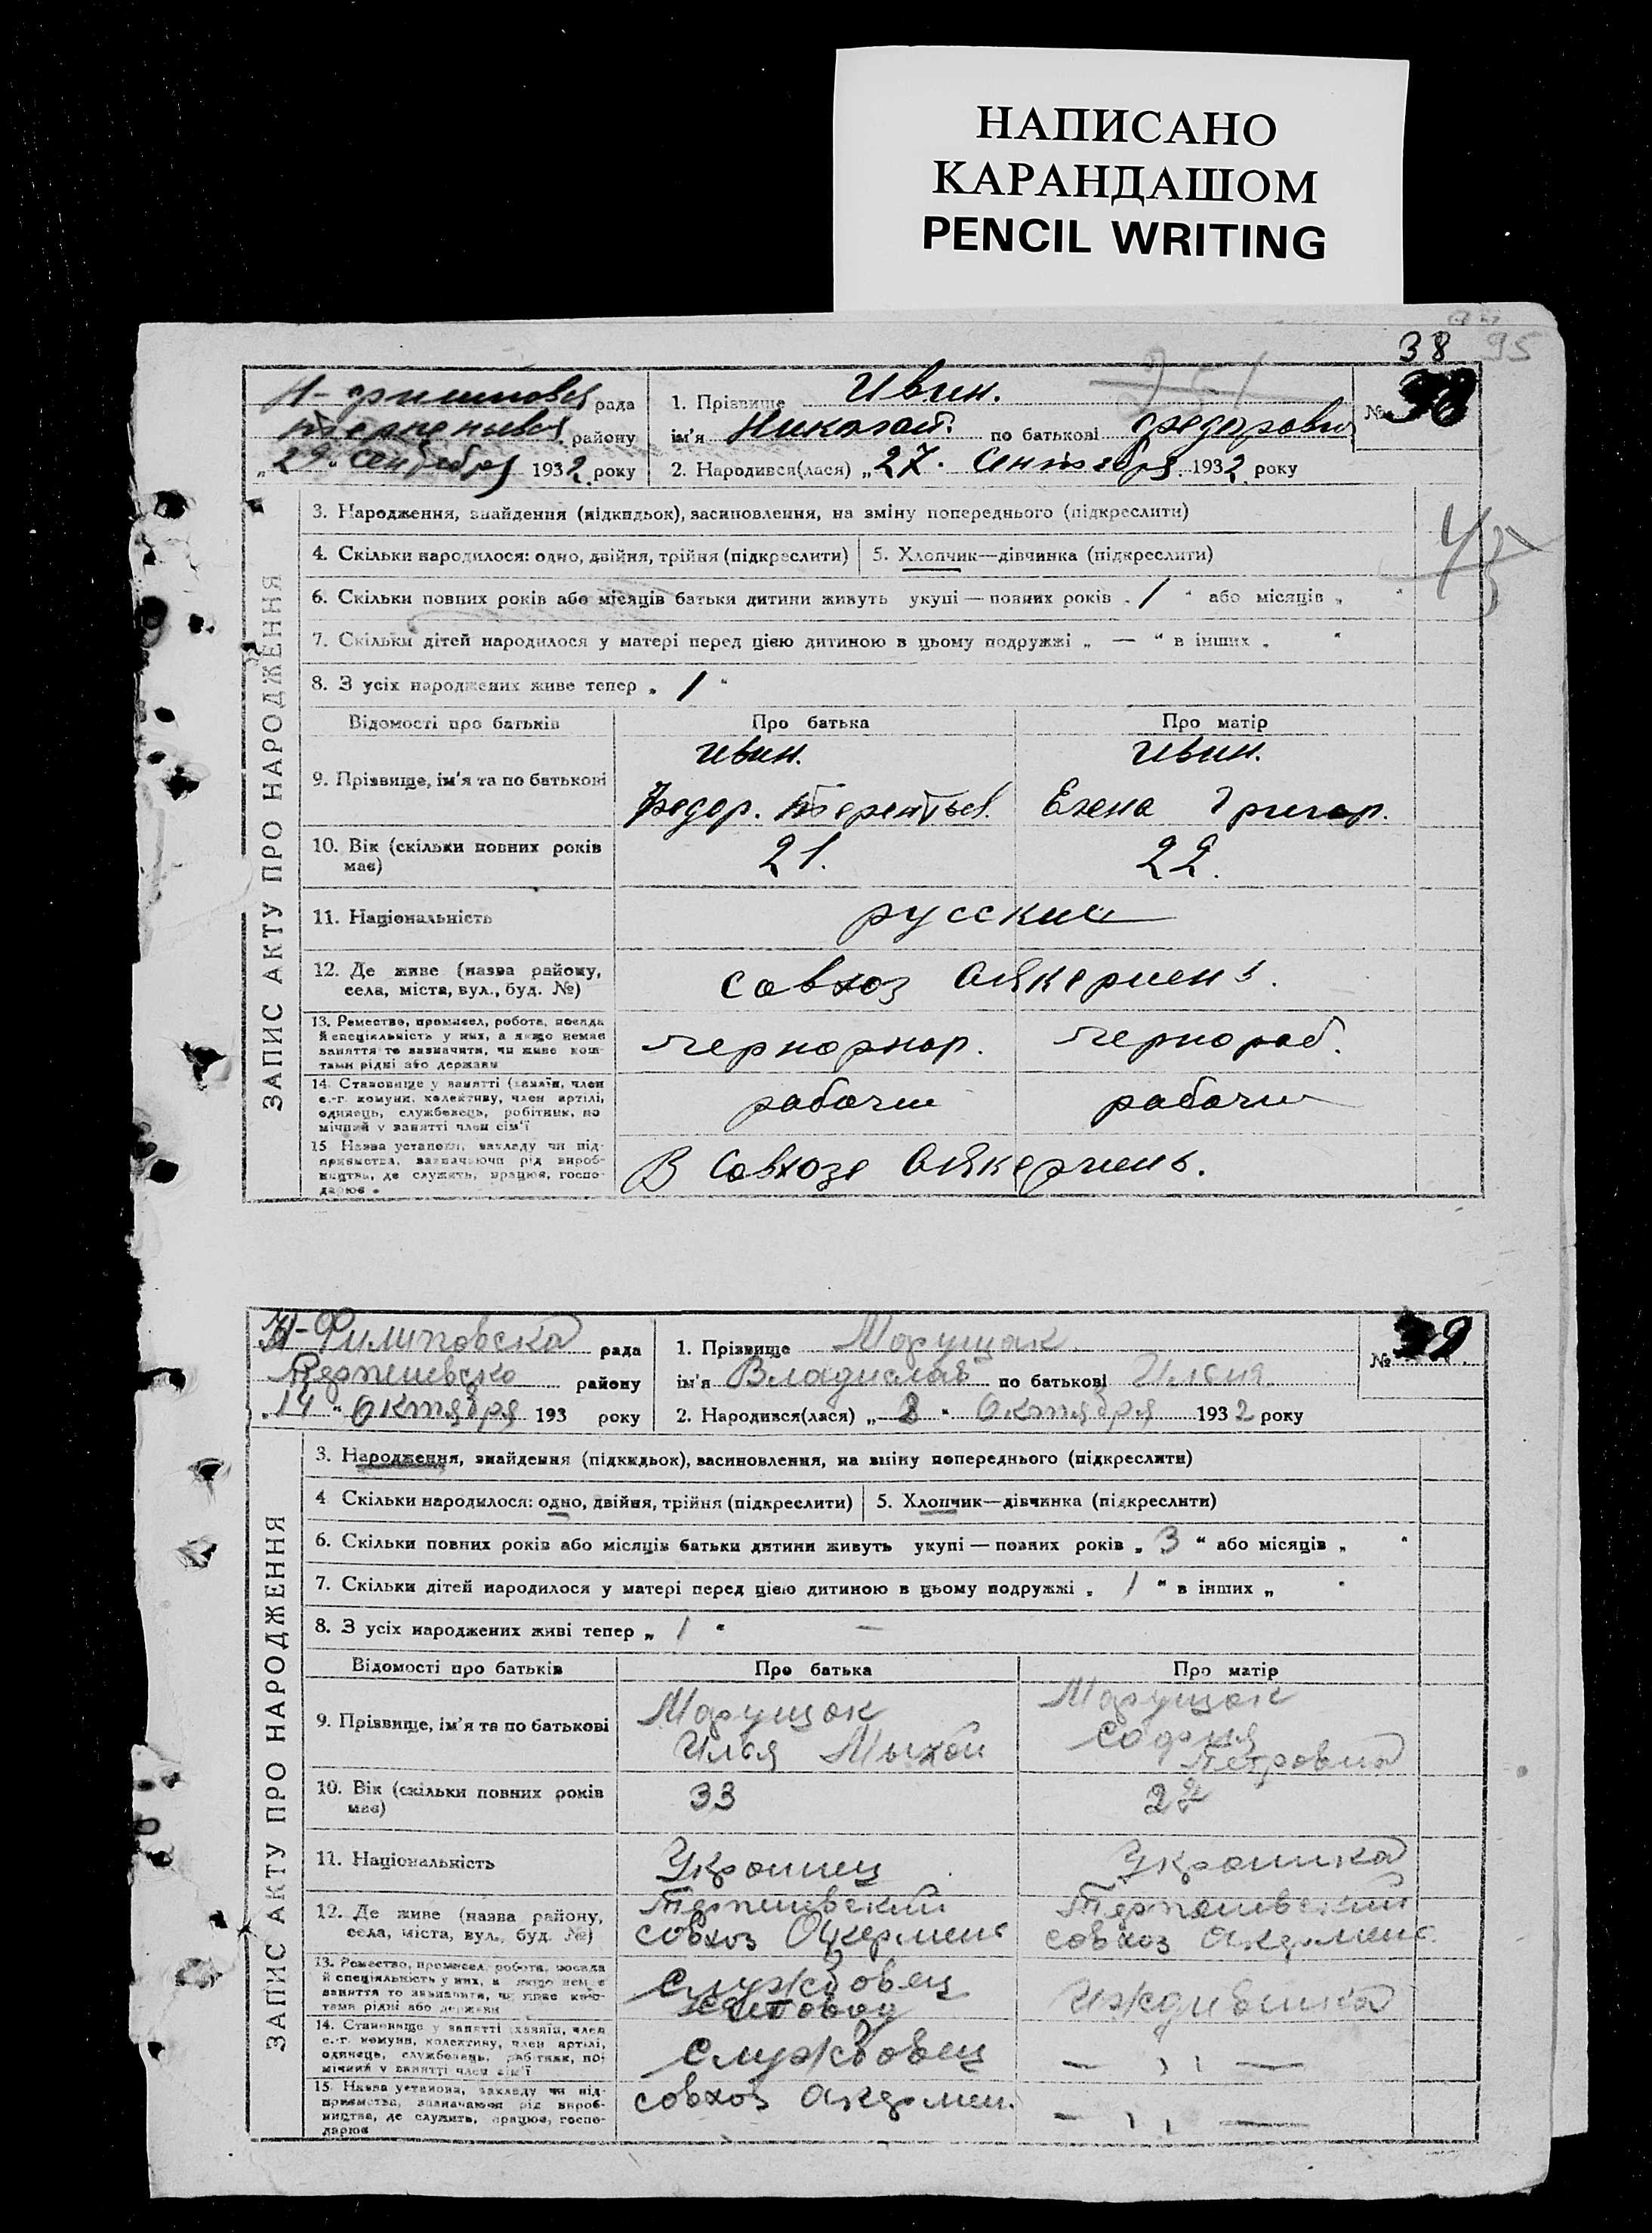 НАПИСАНО
КАРАНДАШОМ
PENCIL WRITING
38 95
рада 1. Прізвище Ивин. №
району ім'я Николай. по батькові Федорович
„29“ Сентября 1932 року 2. Народився(лася) „27. Сентября 1932 року
ЗАПИС АКТУ ПРО НАРОДЖЕННЯ
3. Народження, знайдення (підкидьок), засиновлення, на зміну попереднього (підкреслити)
4. Скільки народилося: одно, двійня, трійня (підкреслити) 5. Хлопчик—дівчинка (підкреслити)
6. Скільки повних років або місяців батьки дитини живуть укупі — повних років „1“ або місяців „ “
7. Скільки дітей народилося у матері перед цією дитиною в цьому подружжі „—“ в інших „ “
8. З усіх народжених живе тепер „1“
Відомості про батьків Про батька Про матір
9. Прізвище, ім'я та по батькові Ивин. Ивин.
Федор. Терентьев. Елена Григор.
10. Вік (скільки повних років має) 21. 22.
11. Національність русский
12. Де живе (назва району, села, міста, вул., буд. №) совхоз
13. Ремество, промисел, робота, посада
й спеціяльність у них, а якщо немає
заняття то зазначити, чи живе кош-
тами рідні або держави чернораб.
14. Становище у занятті (хазяїн, член
с.-г. комуни, колективу, член артілі,
одинець, службовець, робітник, по
мічний у занятті член сім'ї рабочий рабочий
15 Назва установи, закладу чи під-
приємства, зазначаючи рід вироб-
ництва, де служить, працює, госпо-
дарює. В Совхозе
Н-Филиповска рада 1. Прізвище Марущак №39.
району ім'я Владислав по батькові Илья
„14“ Октября 193 року 2. Народився(лася) „8“ Октября 1932 року
ЗАПИС АКТУ ПРО НАРОДЖЕННЯ
3. Народження, знайдення (підкидьок), засиновлення, на зміну попереднього (підкреслити)
4 Скільки народилося: одно, двійня, трійня (підкреслити) 5. Хлопчик—дівчинка (підкреслити)
6. Скільки повних років або місяців батьки дитини живуть укупі — повних років „3“ або місяців „ “
7. Скільки дітей народилося у матері перед цією дитиною в цьому подружжі „1“ в інших „ “
8. З усіх народжених живі тепер „1“ —
Відомості про батьків Про батька Про матір
9. Прізвище, ім'я та по батькові Марущак Марущак
Илья Мыхай София
Петровна
10. Вік (скільки повних років має) 33
11. Національність Украинец Украинка
12. Де живе (назва району,
села, міста, вул., буд. №) совхоз совхоз
13. Ремество, промисел, робота, посада
й спеціяльність у них, а якщо немає
заняття то зазначити, чи живе кош-
тами рідні або держави Службовец Иждивинка
14. Становище у занятті (хазяїн, член
с.-г. комуни, колективу, член артілі,
одинець, службовець, робітник, по
мічний у занятті член сім'ї Службовец — ,, —
15. Назва установи, закладу чи під-
приємства, зазначаючи рід вироб-
ництва, де служить, працює, госпо-
дарює совхоз — ,, —